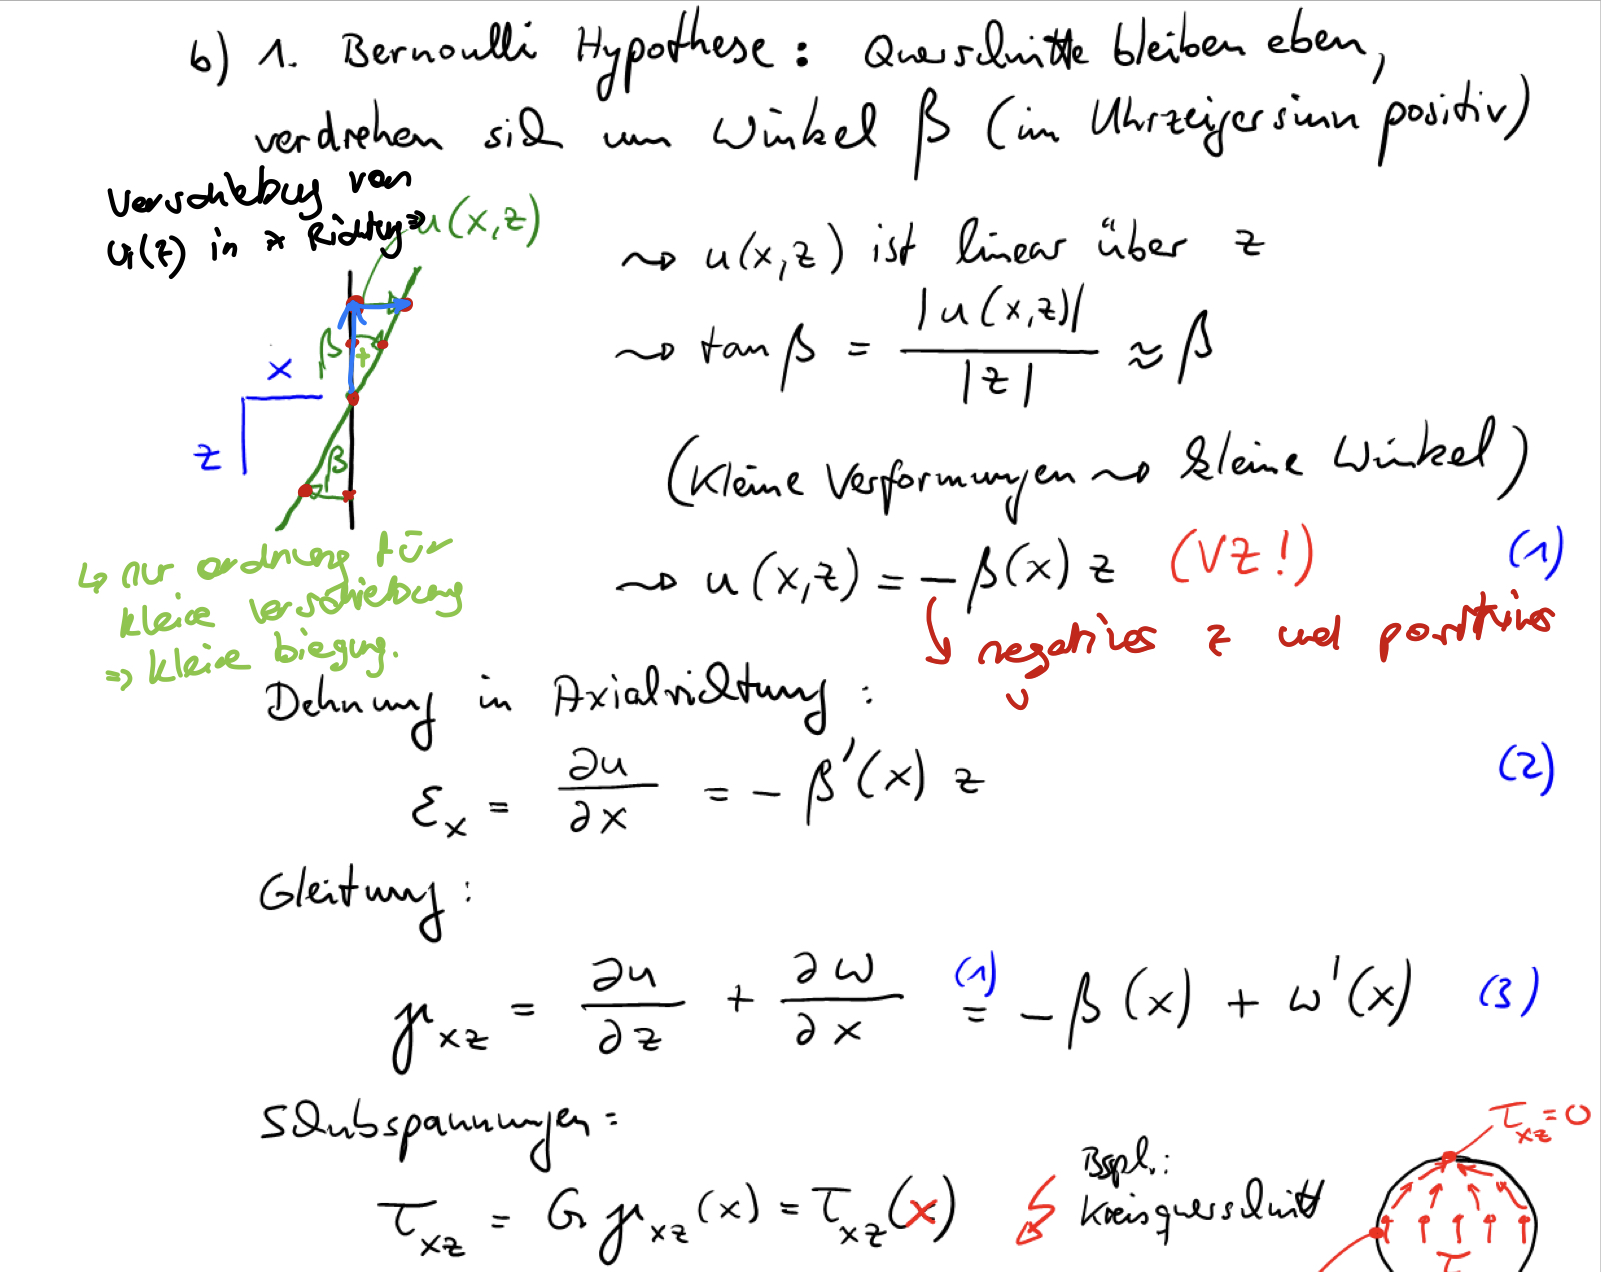 b) 1. Bernoulli Hypothese: Querschnitte bleiben eben,
verdrehen sich um Winkel β (im Uhrzeigersinn positiv)
Verschiebug von
u(z) in x Richtug ⇒ u(x,z)
β
+
x
z
β
↳ nur ordnung für
kleine verschiebung
⇒ kleine biegung.
⇝ u(x,z) ist linear über z
⇝ tan β = |u(x,z)| / |z| ≈ β
(kleine Verformungen ⇝ kleine Winkel)
⇝ u(x,z) = - β(x) z (VZ!) (1)
↳ negatives z und positives
u
Dehnung in Axialrichtung:
εx = ∂u/∂x = - β'(x) z (2)
Gleitung:
γxz = ∂u/∂z + ∂w/∂x (1)= - β(x) + w'(x) (3)
Schubspannungen:
τxz = G γxz(x) = τxz(x)
Bspl.:
Kreisquerschnitt
τxz = 0
τ